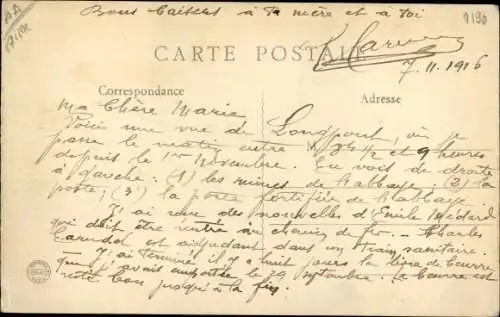 Bons baisers à ta mère et à toi
CARTE POSTALE
7.11.1916
Correspondance
Adresse
Ma Chère Marie
Voici une vue de Longpont, où je
passe le matin entre 8 1/2 et 9 heures
depuis le 1er Novembre. Tu vois de droite
à gauche: (1) les ruines de l'abbaye (2) la
poste; (3) la porte fortifiée de l'abbaye.
J'ai reçu des nouvelles d'Emile Médard
qui doit être rentré au chemin de fer. — Charles
est adjudant dans un train sanitaire.
J'ai terminé il y a huit jours la livre de beurre
que j'avais emportée le 29 septembre. Le beurre est
resté bon jusqu'à la fin.